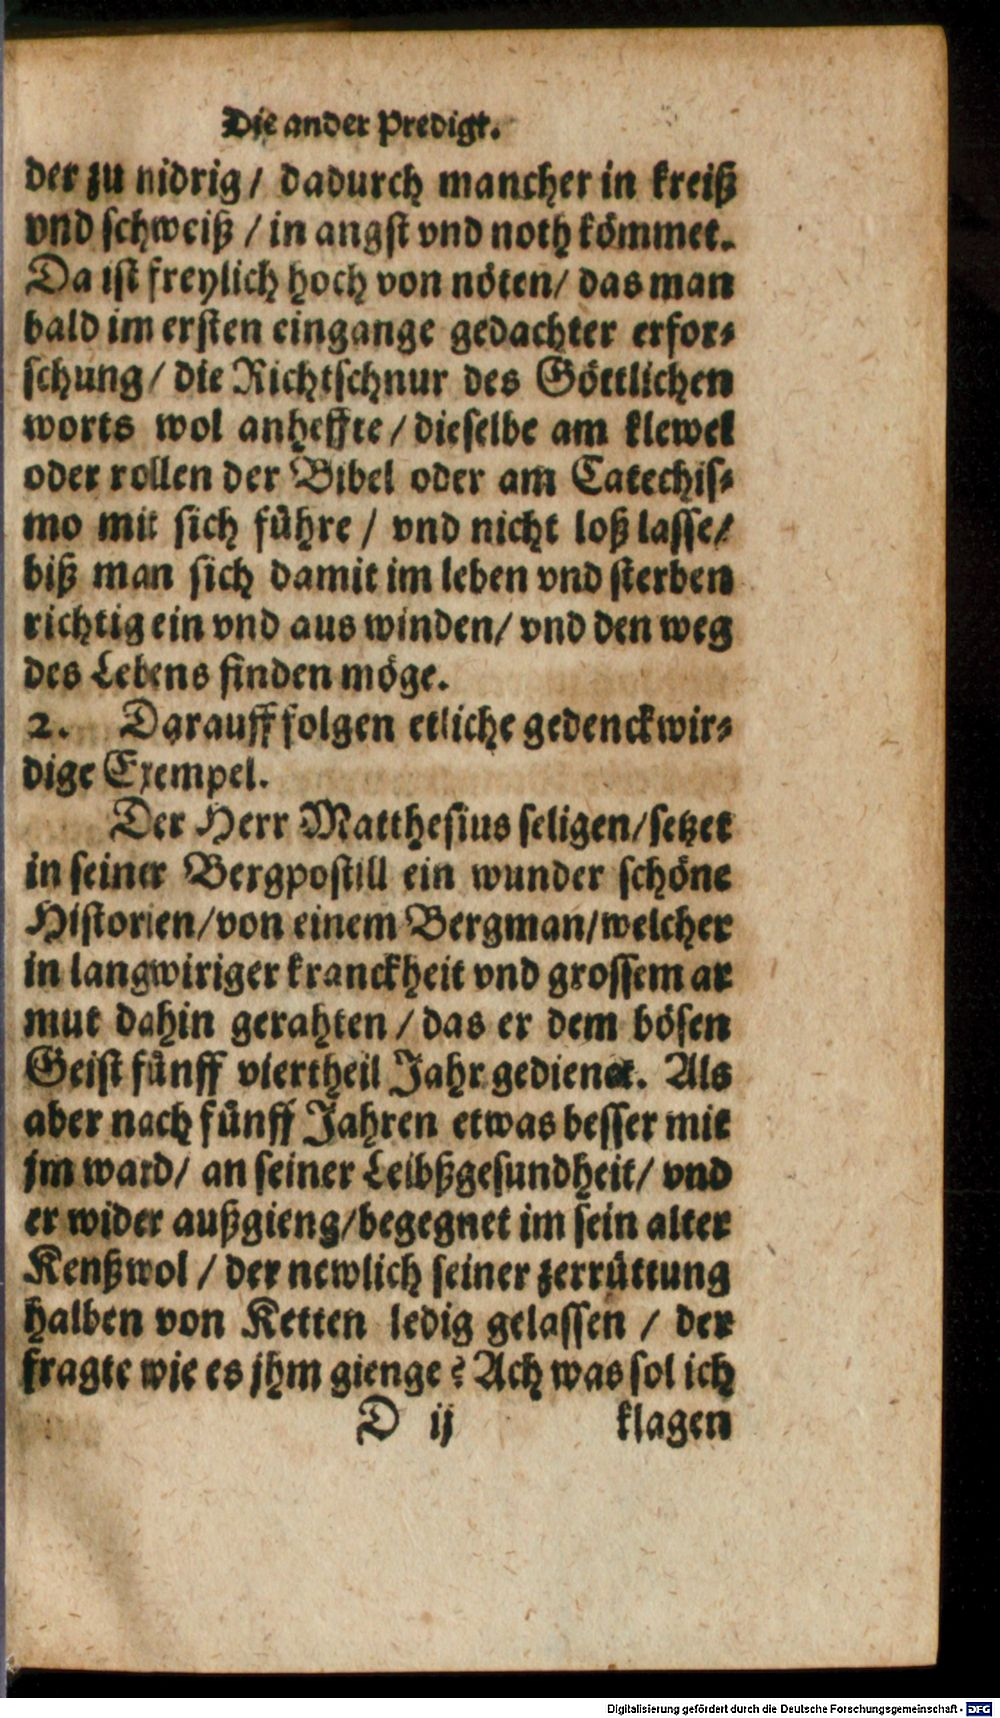 Die ander Predigt.
der zu nidrig / dadurch mancher in kreiß
vnd schweiß / in angst vnd noth kömmet.
Da ist freylich hoch von nöten / das man
bald im ersten eingange gedachter erfor-
schung / die Richtschnur des Göttlichen
worts wol anheffte / dieselbe am klewel
oder rollen der Bibel oder am Catechis-
mo mit sich führe / vnd nicht loß lasse /
biß man sich damit im leben vnd sterben
richtig ein vnd aus winden / vnd den weg
des Lebens finden möge.
2. Darauff folgen etliche gedenckwir-
dige Exempel.
Der Herr Matthesius seligen / setzet
in seiner Bergpostill ein wunder schöne
Historien / von einem Bergman / welcher
in langwiriger kranckheit vnd grossem ar
mut dahin gerahten / das er dem bösen
Geist fünff viertheil Jahr gedienet. Als
aber nach fünff Jahren etwas besser mit
jm ward / an seiner Leibßgesundheit / vnd
er wider außgieng / begegnet im sein alter
Kenßwol / der newlich seiner zerrüttung
halben von Ketten ledig gelassen / der
fragte wie es jhm gienge? Ach was sol ich
D ij klagen
Digitalisierung gefördert durch die Deutsche Forschungsgemeinschaft - DFG